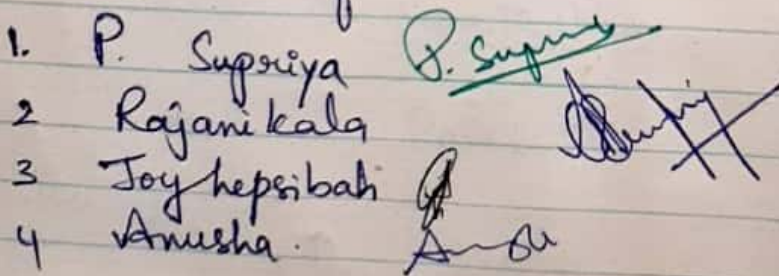 1. P. Supriya P. Supriya
2 Rajani kala
3 Joy hepsibah
4 Anusha.